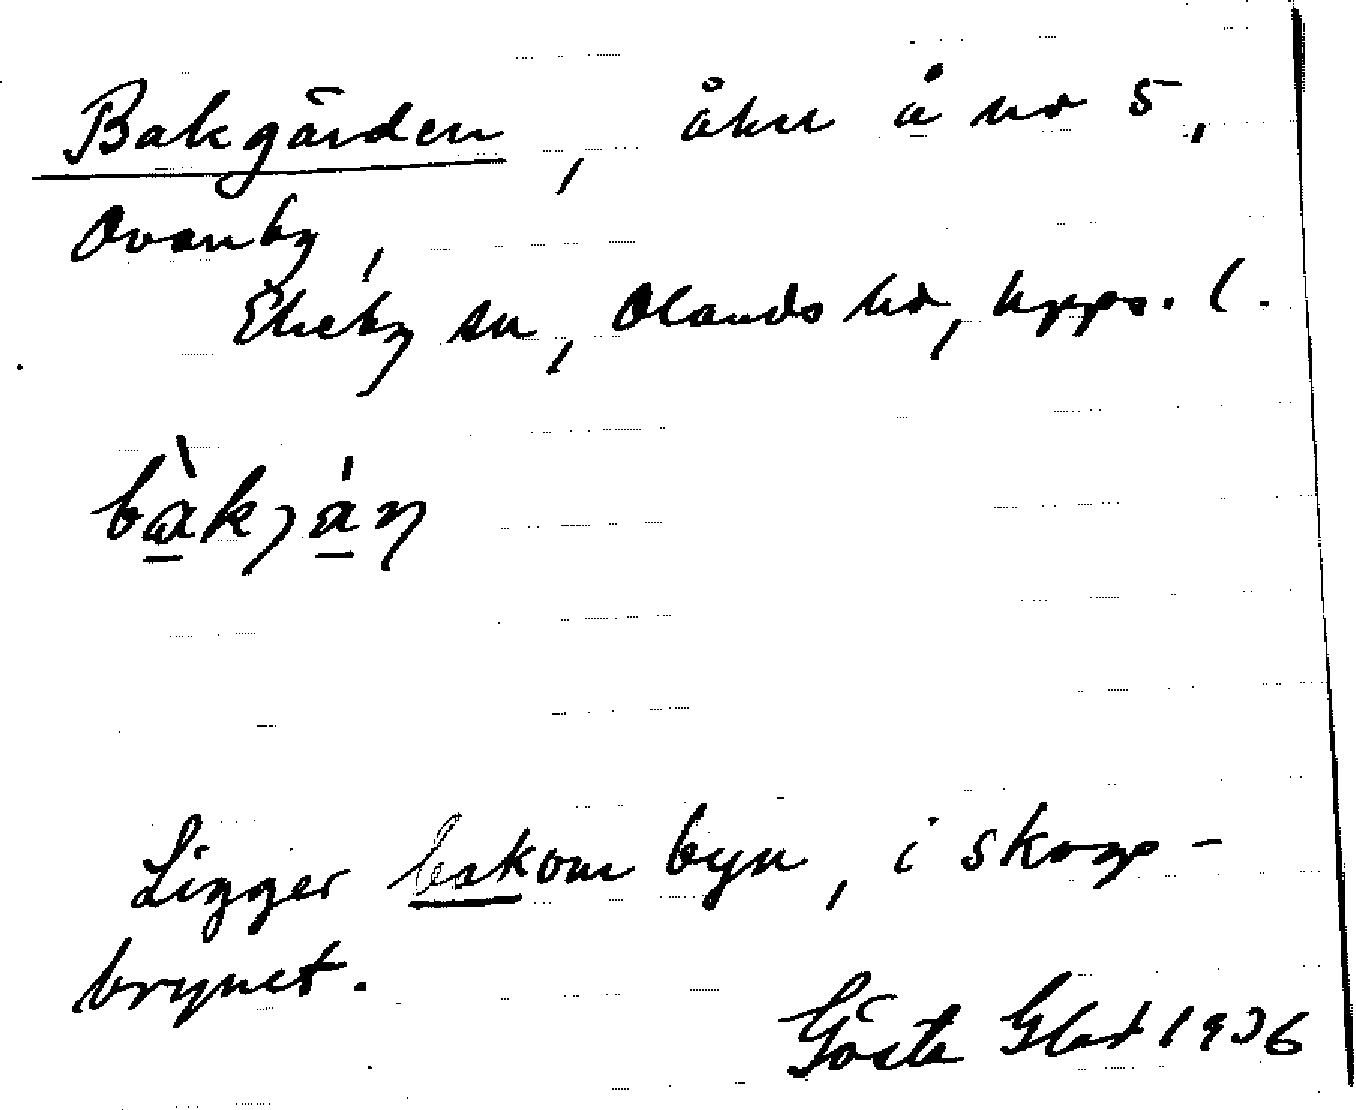 Bakgården, åker å nr 5,
Ovanby,
Ekeby sn, Olands hd, Upps. l.
bàkján
Ligger bakom byn, i skogs-
brynet.
Gösta Glad 1936